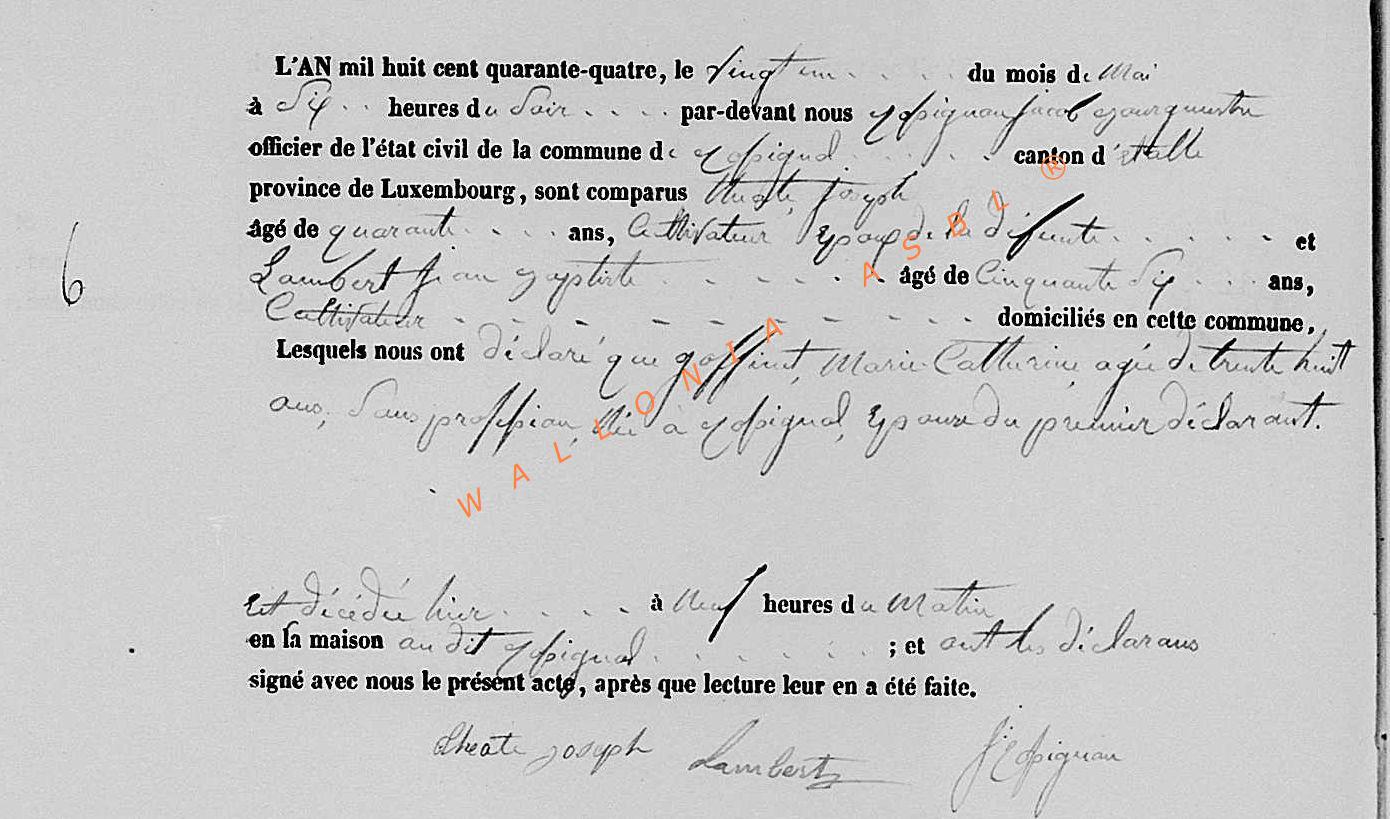 L'AN mil huit cent quarante-quatre, le vingt un du mois de Mai
à Six heures du Soir par-devant nous Jacob Bourgmestre
officier de l'état civil de la commune de canton d'Etalle
province de Luxembourg, sont comparus Theate, Joseph
âgé de quarante ans, Cultivateur Epoux de la défunte et
Lambert Jean Baptiste âgé de Cinquante Six ans,
6
Cultivateur domiciliés en cette commune,
Lesquels nous ont déclaré que goffinet, Marie Catherine agée de trente huit
ans, Sans proffesion, Née à Epouse du premier déclarant.
Est décédée hier à Neuf heures du Matin
en la maison au dit ; et ont les déclarans
signé avec nous le présent acte, après que lecture leur en a été faite.
theate joseph Lambert
WALLONIA ASBL ®